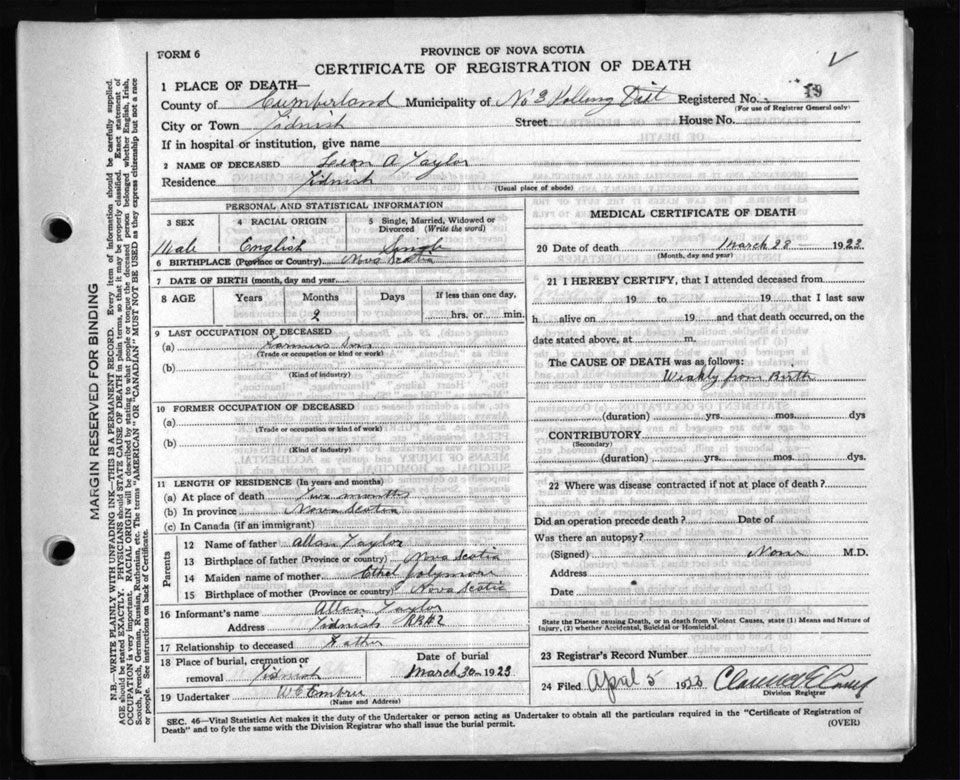 FORM 6
PROVINCE OF NOVA SCOTIA
CERTIFICATE OF REGISTRATION OF DEATH
1 PLACE OF DEATH—
County of Cumberland Municipality of No 3 Polling Dist Registered No. 19
(For use of Registrar General only)
City or Town Tidnish Street House No.
If in hospital or institution, give name
2 NAME OF DECEASED A Taylor
Residence Tidnish
(Usual place of abode)
PERSONAL AND STATISTICAL INFORMATION
3 SEX 4 RACIAL ORIGIN 5 Single, Married, Widowed or Divorced (Write the word)
Male English Single
6 BIRTHPLACE (Province or Country) Nova Scotia
7 DATE OF BIRTH (month, day and year)
8 AGE Years Months Days If less than one day,
2 hrs. or min.
9 LAST OCCUPATION OF DECEASED
(a) Farmers Son
(Trade or occupation or kind or work)
(b)
(Kind of industry)
10 FORMER OCCUPATION OF DECEASED
(a)
(Trade or occupation or kind of work)
(b)
(Kind of industry)
11 LENGTH OF RESIDENCE (In years and months)
(a) At place of death Two months
(b) In province Nova Scotia
(c) In Canada (if an immigrant)
Parents
12 Name of father Allan Taylor
13 Birthplace of father (Province or country) Nova Scotia
14 Maiden name of mother Ethel
15 Birthplace of mother (Province or country) Nova Scotia
16 Informant's name Allan Taylor
Address Tidnish RR#2
17 Relationship to deceased Father
18 Place of burial, cremation or removal Tidnish
Date of burial March 30 1923
19 Undertaker W E Embree
(Name and Address)
MEDICAL CERTIFICATE OF DEATH
20 Date of death March 28 — 1923
(Month, day and year)
21 I HEREBY CERTIFY, that I attended deceased from
19 to 19 that I last saw
h alive on 19 and that death occurred, on
date stated above, at m.
The CAUSE OF DEATH was as follows:
Weakly from Birth
(duration) yrs. mos. dys
CONTRIBUTORY
(Secondary)
(duration) yrs. mos. dys.
22 Where was disease contracted if not at place of death?
Did an operation precede death? Date of
Was there an autopsy?
(Signed) None M.D.
Address
Date
State the Disease causing Death, or in death from Violent Causes, state (1) Means and Nature of
Injury, (2) whether Accidental, Suicidal or Homicidal.
23 Registrar's Record Number
24 Filed April 5 1923 Clarence E
Division Registrar
SEC. 46—Vital Statistics Act makes it the duty of the Undertaker or person acting as Undertaker to obtain all the particulars required in the "Certificate of Registration of
Death" and to fyle the same with the Division Registrar who shall issue the burial permit.
(OVER)
MARGIN RESERVED FOR BINDING
N.B.—WRITE PLAINLY WITH UNFADING INK—THIS IS A PERMANENT RECORD. Every item of information should be carefully supplied.
AGE should be stated EXACTLY. PHYSICIANS should STATE CAUSE OF DEATH in plain terms, so that it may be properly classified. Exact Statement of
OCCUPATION is very important. RACIAL ORIGIN will be described by stating to what people or tongue the deceased person belonged whether English, Irish,
Scotch, French, German, Russian, Ruthenian, etc. The terms "AMERICAN" OR "CANADIAN" MUST NOT BE USED as they express citizenship but not a race
or people. See instructions on back of Certificate.